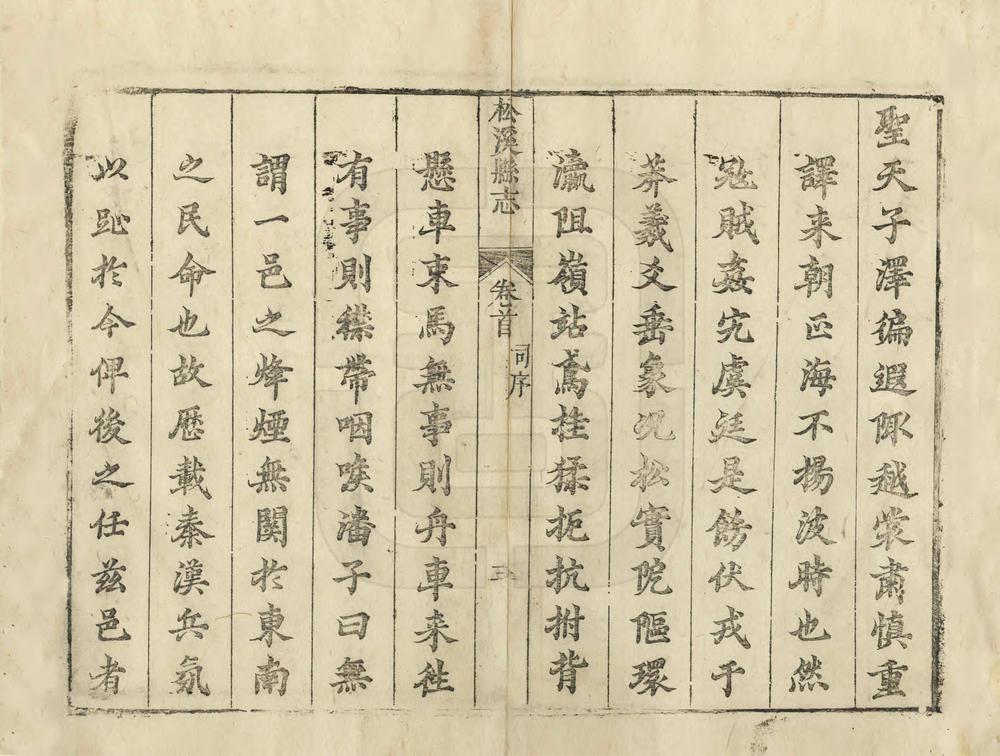 聖天子澤徧遐陬越裳肅慎重
譯来朝匹海不揚波時也然
冦賊姦宄虞廷是飭伏戎于
莽羲爻垂象况松實阸傴環
瀛阻嶺站鳶挂猱扼抗拊背
松溪縣志 卷首 司序 三
懸車束馬無事則舟車来徃
有事則襟帶咽喉潘子曰無
謂一邑之烽煙無關扵東南
之民命也故歴載秦漢兵氛
以趾扵今俾後之任兹邑者